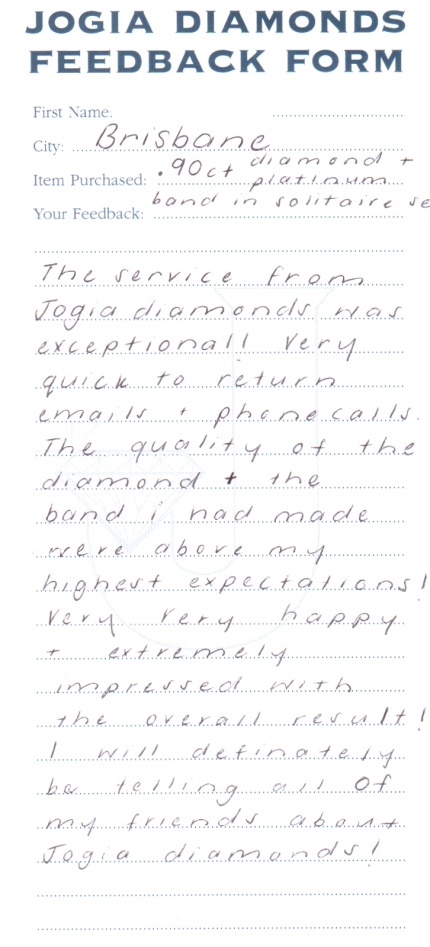 JOGIA DIAMONDS
FEEDBACK FORM
First Name:
City: Brisbane
Item Purchased: .90ct diamond +
platinum
Your Feedback: band in solitaire se
The service from
Jogia diamonds was
exceptional! Very
quick to return
emails + phonecalls.
The quality of the
diamond + the
band i had made
were above my
highest expectations!
Very very happy
+ extremely
impressed with
the overall result!
I will definately
be telling all of
my friends about
Jogia diamonds!